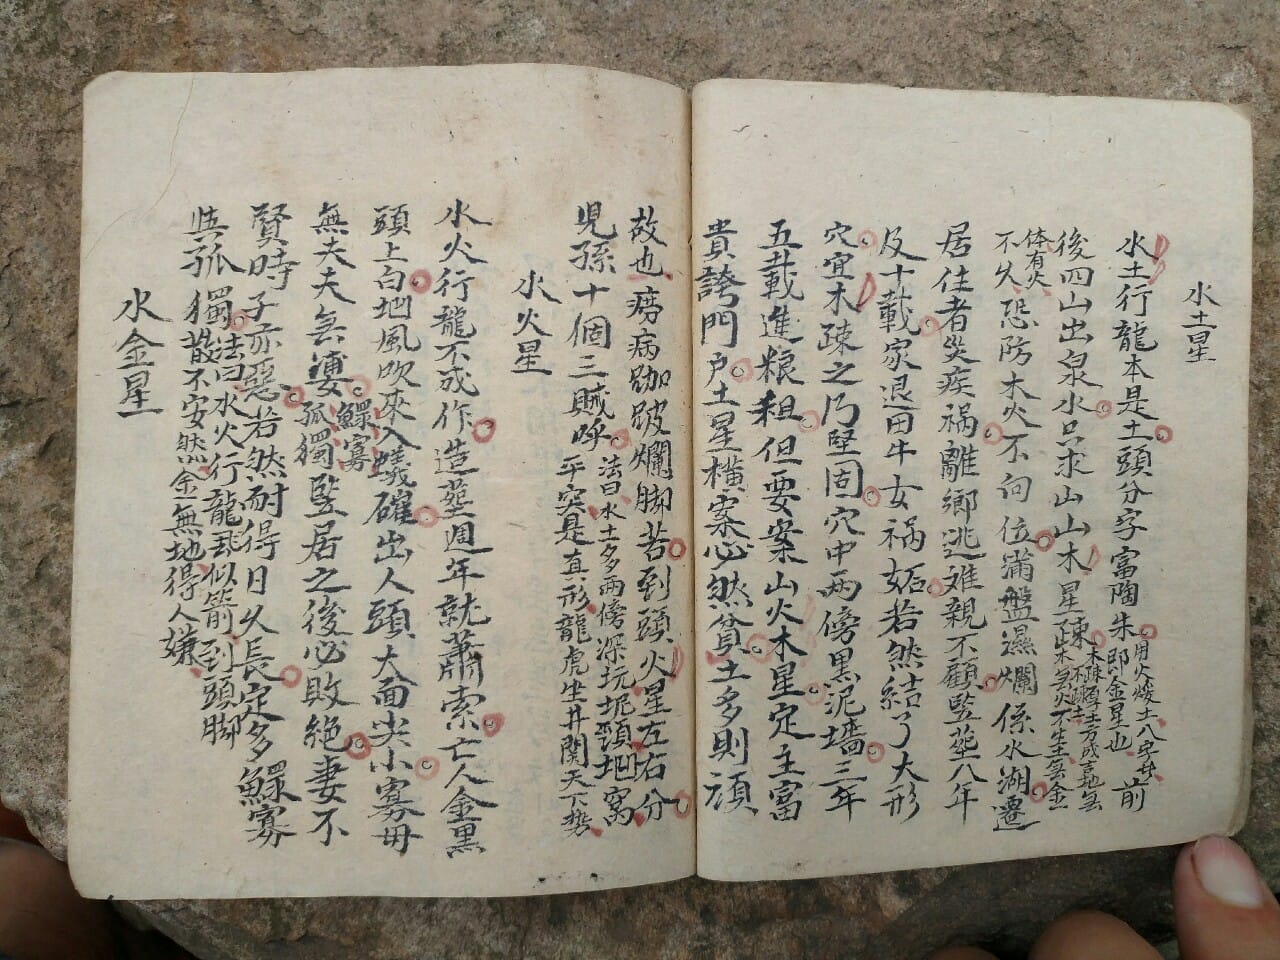 水土星
水土行龍本是土頭分字富陶朱用火燥土八字井即金星也前
後四山出泉水只求山山木星疎
体有火
不久恐防木火不向位滿盤濕爛係水湖遷
居住者災疾禍離鄉逃难親不顧監葬八年
及十載家退田牛女禍妬若然結了大形
穴宜木疎之乃堅固穴中兩傍黑泥墻三年
五載進粮租但要案山火木星定主富
貴誇門户土星橫案必然貧土多則頑
故也痨病跏跛爛脚苦到頭火星左右分
児孫十個三賊呼法曰水土多兩傍深坑坭頸地窩平突是直形龍虎坐井関天下勢
水火星
水火行龍不成作造塟週年就蕭索亡人金黑
頭上白地風吹來入蟻確出人頭大面尖小寡母
無夫夫無妻鰥寡孤獨監居之後必敗絕妻不
賢時子亦惡若然耐得日久長定多鰥寡
與孤獨法曰水火行龍形似箭到頭脚散不安然金無地得人嫌
水金星